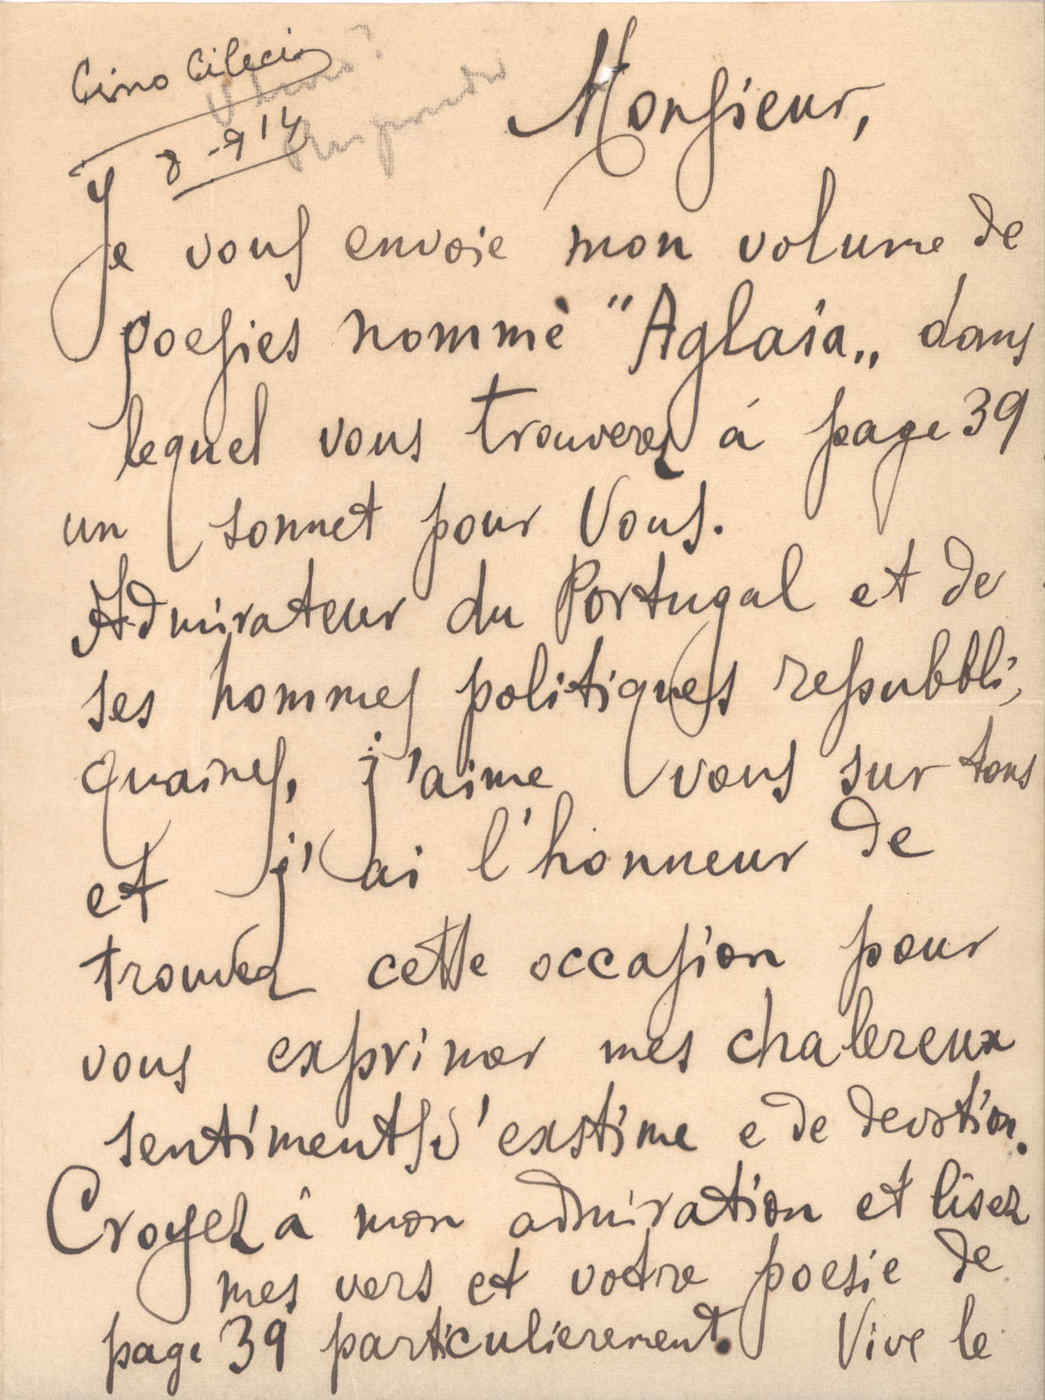 Cino Cilecio
8-914
Monsieur,
Je vous envoie mon volume de
poesies nommè "Aglaia„ dans
lequel vous trouverez á page 39
un sonnet pour Vous.
Admirateur du Portugal et de
ses hommes politiques repubbli,
quaines, j'aime vous sur tous
et j'ai l'honneur de
trouvez cette occasion pour
vous exprimer mes chalereux
sentiments d'exstime e de devotion.
Croyez â mon admiration et lisez
mes vers et votre poesie de
page 39 particulierement. Vive le